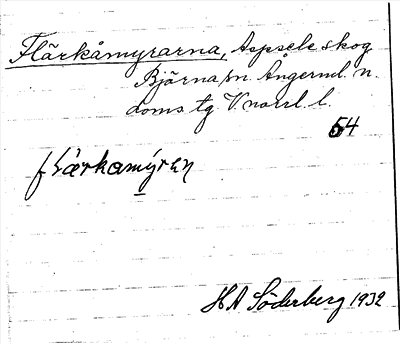 Flärkåmyrarna, Aspsele skog
Bjärna sn. Ångerml. n.
doms. tg. V norrl. l.
54
flärkamýren
HA Söderberg 1932